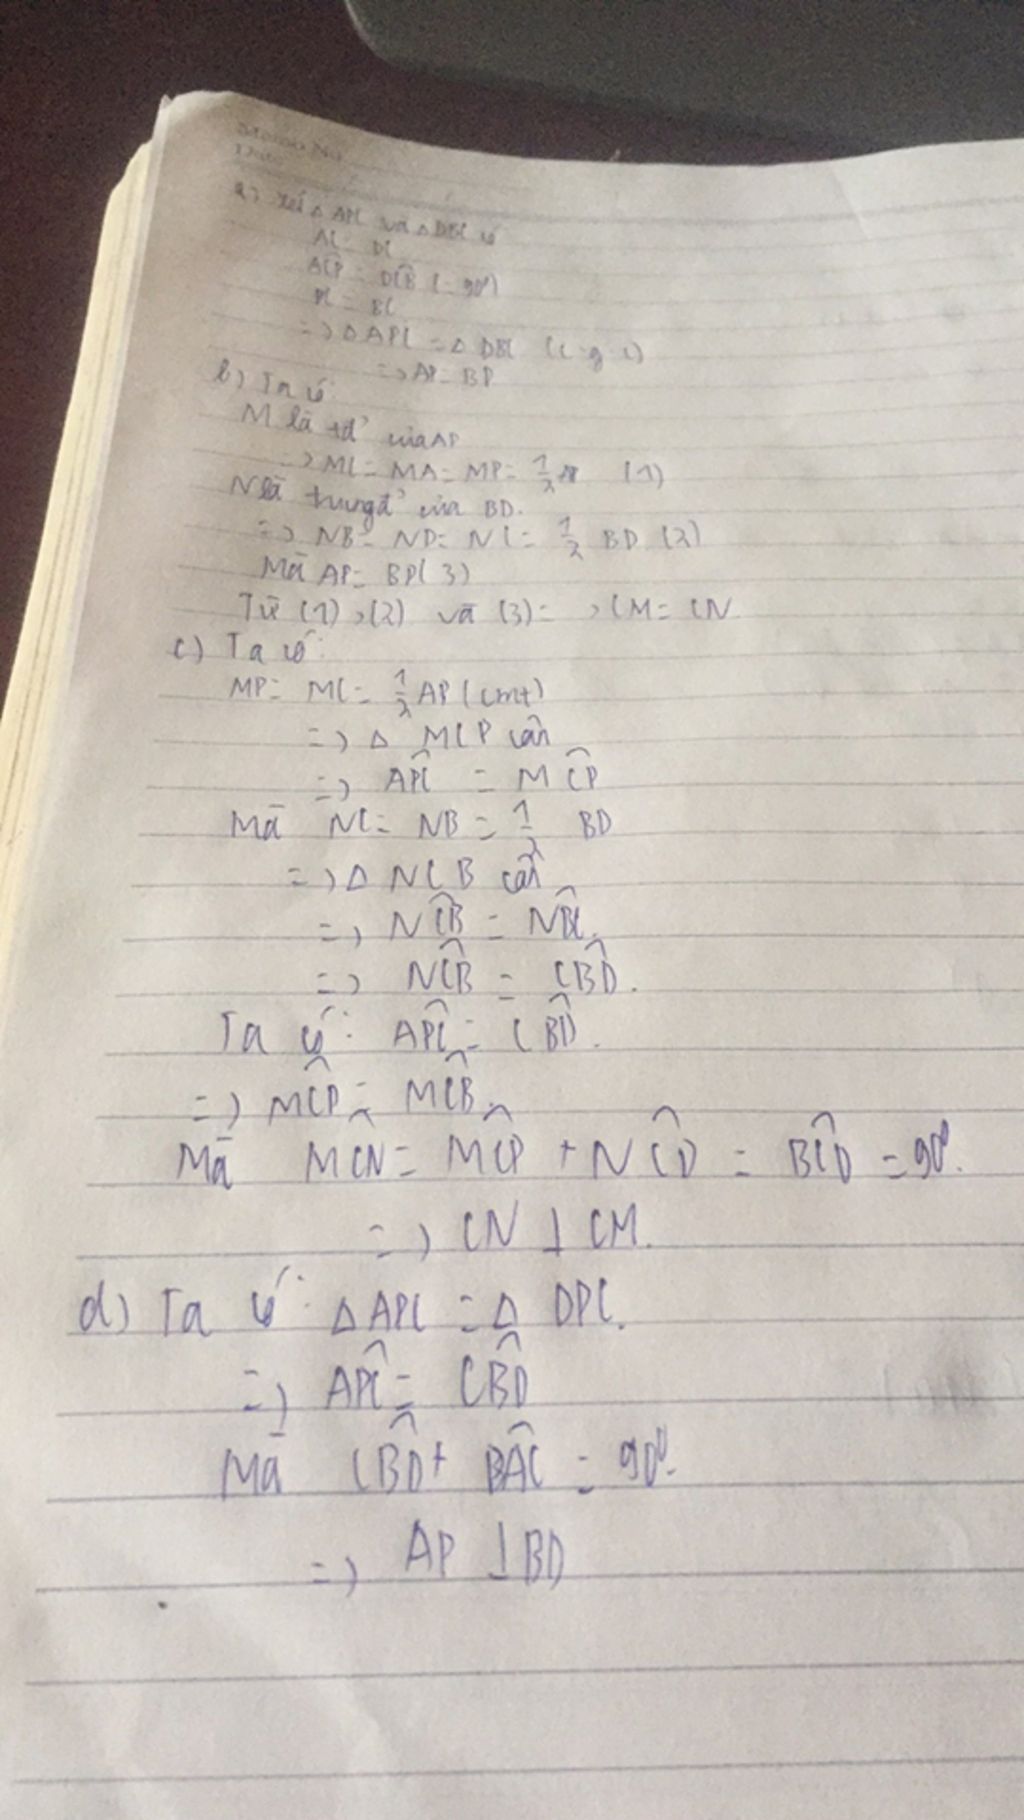 Memo No
Date
a) Xét △ APC và △ DBC có
AC = DC
AĈP = DĈB (= 90⁰)
PC = BC
=> △ APC = △ DBC (c-g-c)
=> AP = BD
b) Ta có:
M là tđ' của AP
=> MC = MA = MP = 1/2 AP (1)
N là trung đ' của BD.
=> NB = ND = NC = 1/2 BD (2)
Mà AP = BD (3)
Từ (1), (2) và (3) => CM = CN
c) Ta có:
MP = MC = 1/2 AP (cmt)
=> △ MCP cân
=> AP̂C = MĈP
Mà NC = NB = 1/2 BD
=> △ NCB cân
=> NĈB = NB̂C.
=> NĈB = CB̂D.
Ta có: AP̂C = CB̂D.
=> MĈP = MĈB.
Mà MĈN = MĈP + NĈD = BĈD = 90⁰.
=> CN ⊥ CM.
d) Ta có: △ APC = △ DPC.
=> AP̂C = CB̂D
Mà CB̂D + BÂC = 90⁰.
=> AP ⊥ BD